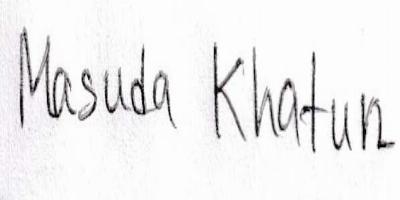 Masuda Khatun